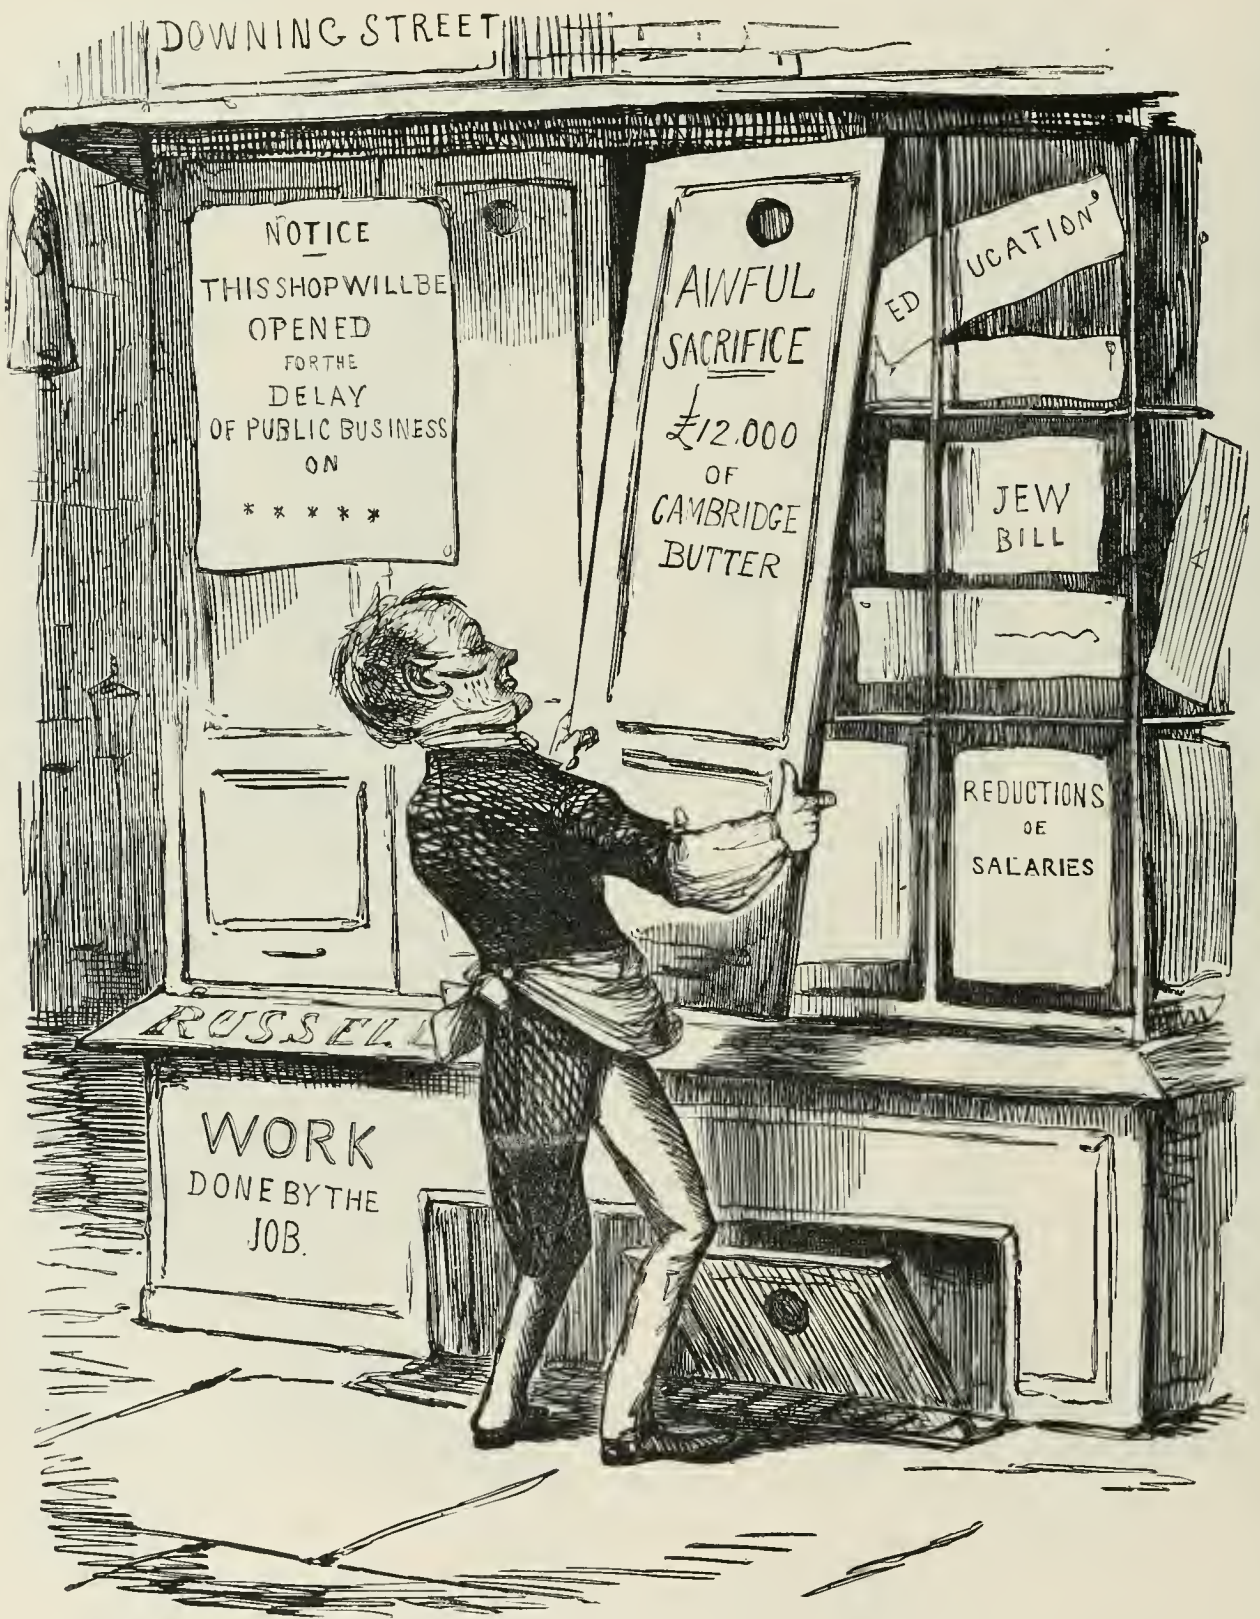 DOWNING STREET
NOTICE
THIS SHOP WILL BE
OPENED
FOR THE
DELAY
OF PUBLIC BUSINESS
ON
* * * * *
AWFUL
SACRIFICE
£12.000
OF
CAMBRIDGE
BUTTER
EDUCATION
JEW
BILL
REDUCTIONS
OF
SALARIES
RUSSELL
WORK
DONE BY THE
JOB.